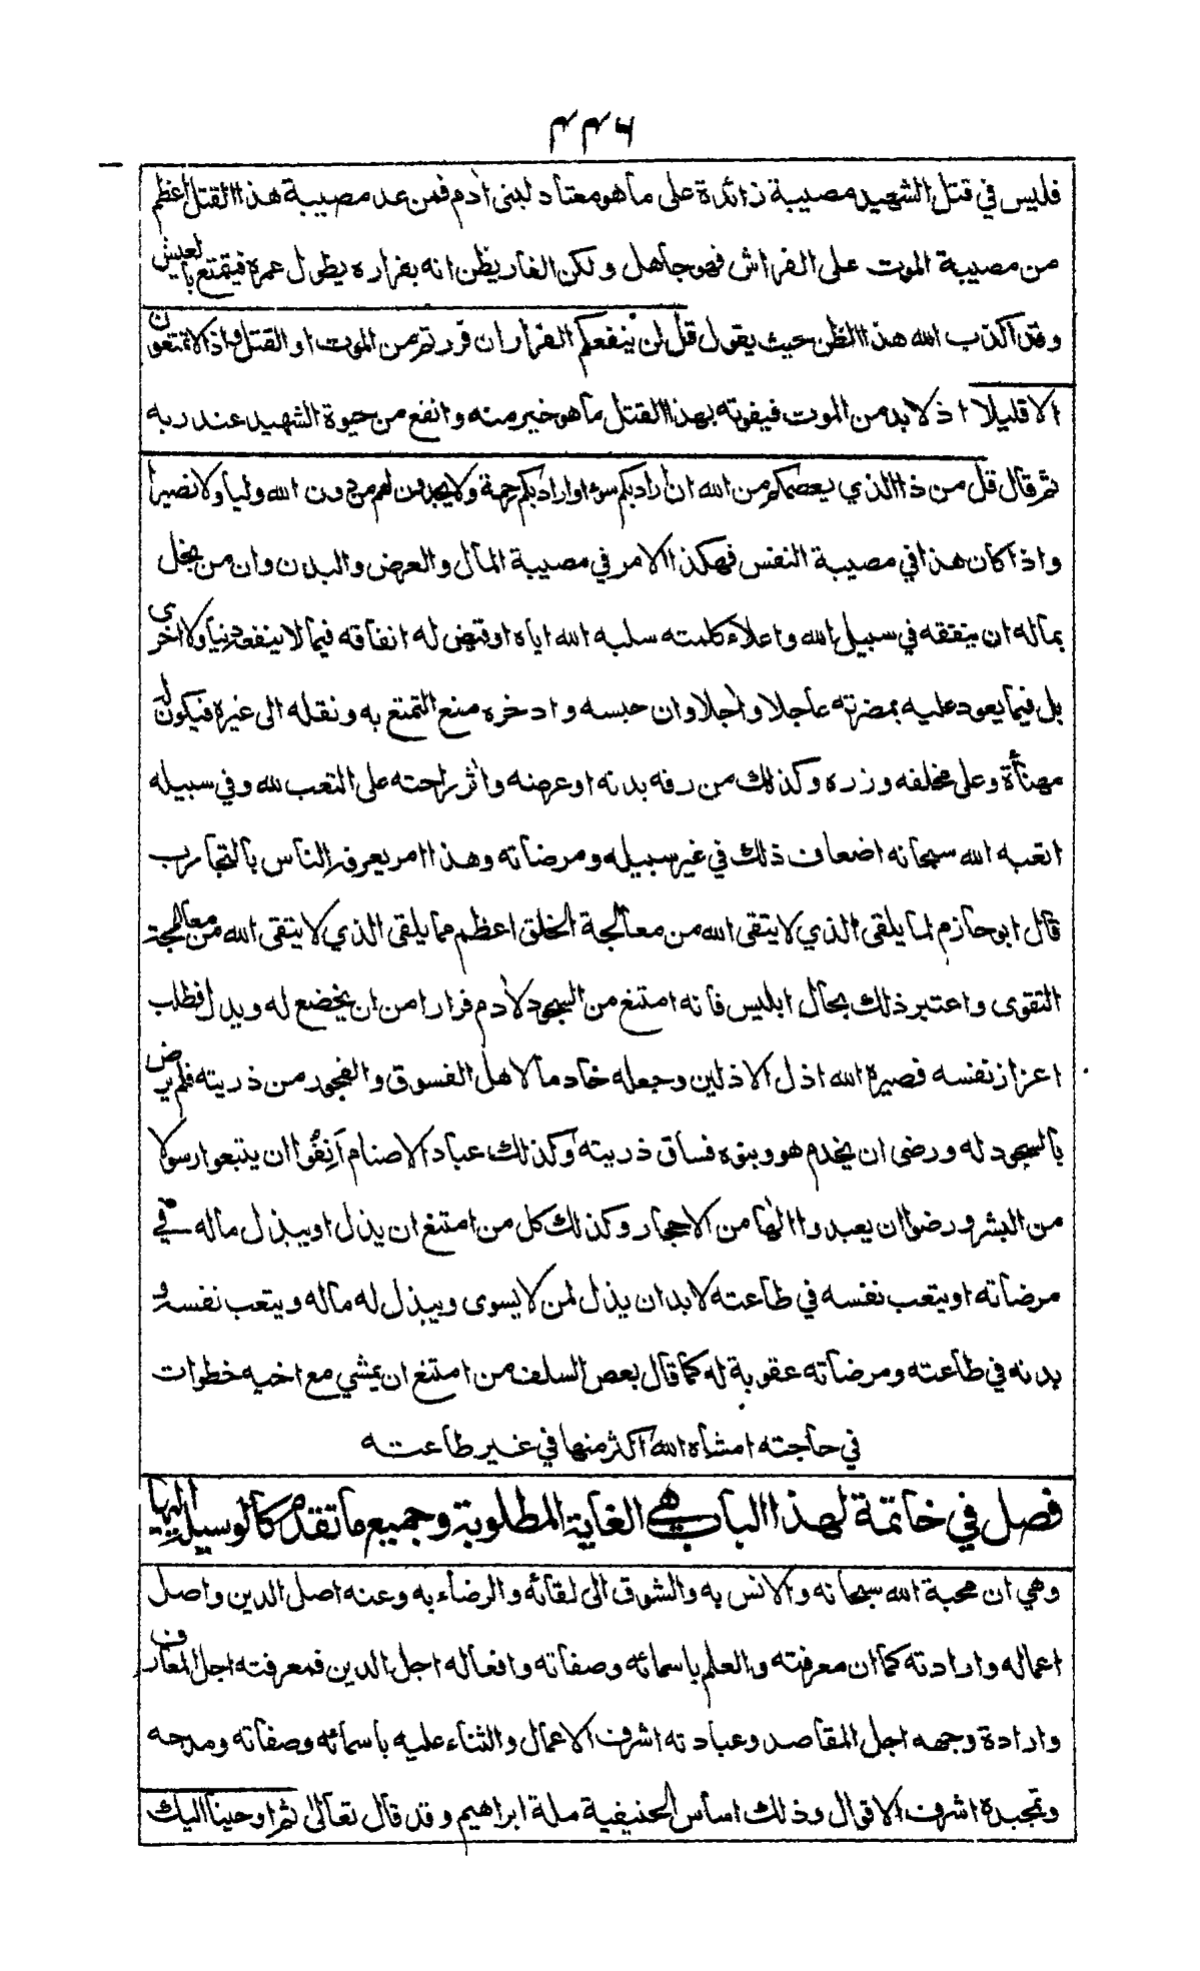 ٤٤٦
فليس في قتل الشهيد مصيبة زائدة على ما هو معتاد لبني ادم فمن عد مصيبة هذا القتل اعظم
من مصيبة الموت على الفراش فهو جاهل ولكن الفار يظن انه بفراره يطول عمره فيتمتع بالعيش
وقد اكذب الله هذا الظن حيث يقول قل لن ينفعكم الفرار ان فررتم من الموت او القتل واذا لا تمتعون
الا قليلا اذ لا بد من الموت فيفوته بهذا القتل ما هو خير منه وانفع من حيوة الشهيد عند ربه
ثم قال قل من ذا الذي يعصمكم من الله ان اراد بكم سوءا او اراد بكم رحمة ولا يجدون لهم من دون الله وليا ولا نصيرا
واذا كان هذا في مصيبة النفس فهكذا الامر في مصيبة المال والعرض والبدن وان من بخل
بماله ان ينفقه في سبيل الله واعلاء كلمته سلبه الله اياه او قيض له انفاقه فيما لا ينفعه دنيا ولا اخرى
بل فيما يعود عليه بمضرته عاجلا واجلا وان حبسه وادخره منع التمتع به ونقله الى غيره فيكون له
مهنأة وعلى مخلفه وزره وكذلك من رفه بدنه او عرضه واثر راحته على التعب لله وفي سبيله
اتعبه الله سبحانه اضعاف ذلك في غير سبيله ومرضاته وهذا امر يعرفه الناس بالتجارب
قال ابو حازم لما يلقى الذي لا يتقى الله من معالجة الخلق اعظم مما يلقى الذي لا يتقى الله من معالجة
التقوى واعتبر ذلك بحال ابليس فانه امتنع من السجود لادم فرارا من ان يخضع له ويدل فطلب
اعزاز نفسه فصيره الله اذل الاذلين وجعله خادما لاهل الفسوق والفجور من ذريته فلم يرض
بالسجود له ورضى ان يخدم هو وبنوه فساق ذريته وكذلك عباد الاصنام اَنِفُوا ان يتبعوا رسولا
من البشر ورضوا ان يعبدوا الٰها من الاحجار وكذلك كل من امتنع ان يذل او يبذل ماله في
مرضاته او يتعب نفسه في طاعته لا بد ان يذل لمن لا يسوى ويبذل له ماله ويتعب نفسه و
بدنه في طاعته ومرضاته عقوبة له كما قال بعض السلف من امتنع ان يمشي مع اخيه خطوات
في حاجته امشاه الله اكثر منها في غير طاعته
فصل في خاتمة لهذا الباب هي الغاية المطلوبة وجميع ما تقدم كالوسيلة اليها
وهي ان محبة الله سبحانه والانس به والشوق الى لقائه والرضاء به وعنه اصل الدين واصل
اعماله وارادته كما ان معرفته والعلم باسمائه وصفاته وافعاله اجل الدين فمعرفته اجل المعارف
وارادة وجهه اجل المقاصد وعبادته اشرف الاعمال والثناء عليه باسمائه وصفاته ومدحه
وتمجيده اشرف الاقوال وذلك اساس الحنيفية ملة ابراهيم وقد قال تعالى ثم اوحينا اليك